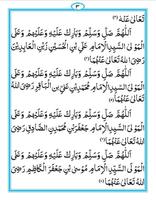 ٣
تَعَالٰى عَنْهُ (٣)
اَللّٰهُمَّ صَلِّ وَسَلِّمْ وَبَارِكْ عَلَيْهِ وَعَلَيْهِمْ وَعَلَى
الْمَوْلَى السَّيِّدِ الْاِمَامِ عَلِيِّ بْنِ الْحُسَيْنِ زَيْنِ الْعَابِدِيْنَ
رَضِيَ اللهُ تَعَالٰى عَنْهُمَا (٤)
اَللّٰهُمَّ صَلِّ وَسَلِّمْ وَبَارِكْ عَلَيْهِ وَعَلَيْهِمْ وَعَلَى
الْمَوْلَى السَّيِّدِ الْاِمَامِ مُحَمَّدِ بْنِ عَلِيِّ نِ الْبَاقِرِ رَضِيَ اللهُ
تَعَالٰى عَنْهُمَا (٥)
اَللّٰهُمَّ صَلِّ وَسَلِّمْ وَبَارِكْ عَلَيْهِ وَعَلَيْهِمْ وَعَلَى
الْمَوْلَى السَّيِّدِ الْاِمَامِ جَعْفَرِ بْنِ مُحَمَّدِ نِ الصَّادِقِ رَضِيَ
اللهُ تَعَالٰى عَنْهُمَا (٦)
اَللّٰهُمَّ صَلِّ وَسَلِّمْ وَبَارِكْ عَلَيْهِ وَعَلَيْهِمْ وَعَلَى
الْمَوْلَى السَّيِّدِ الْاِمَامِ مُوْسَى بْنِ جَعْفَرِ نِ الْكَاظِمِ رَضِيَ
اللهُ تَعَالٰى عَنْهُمَا (٧)